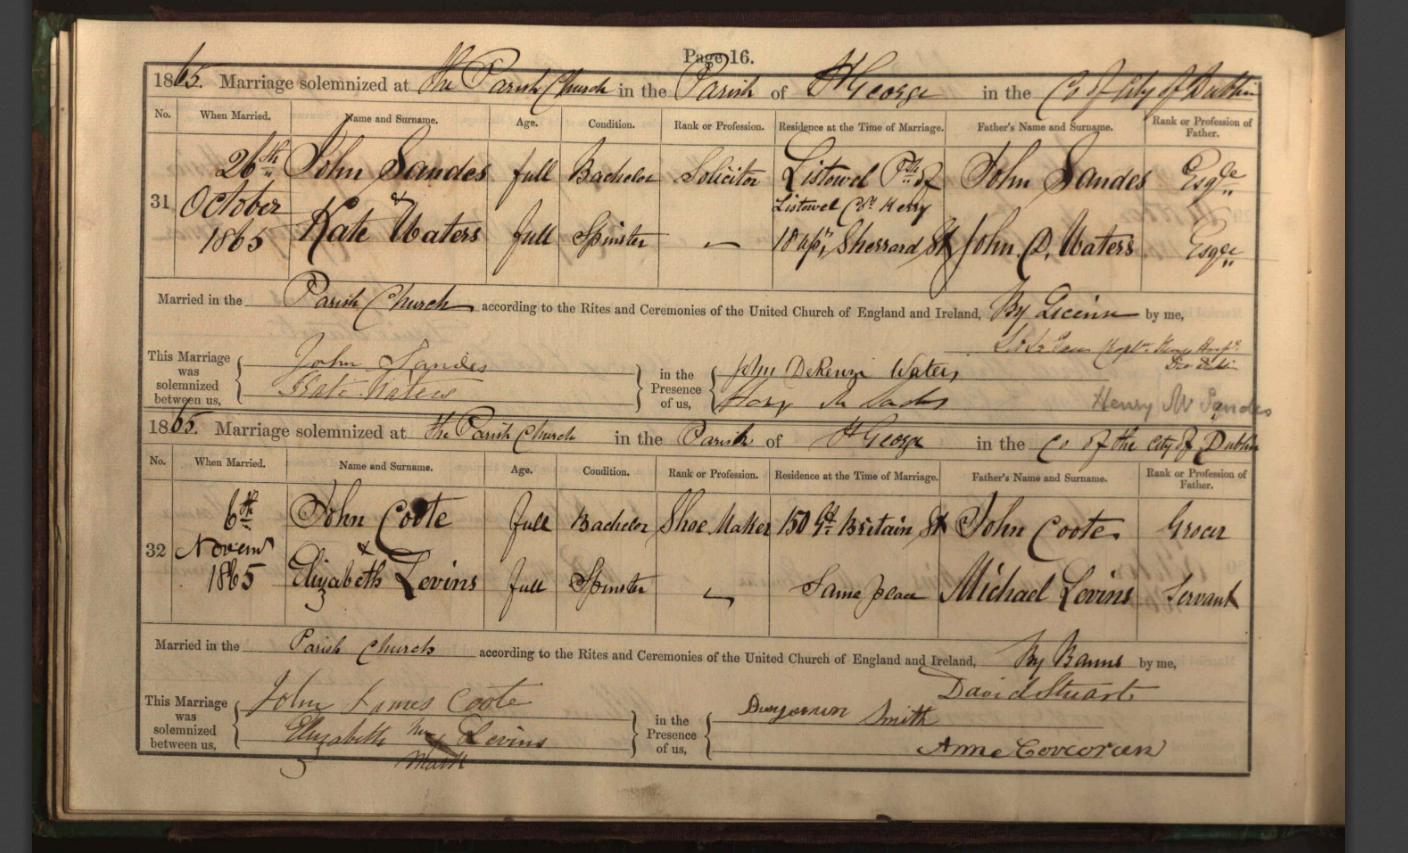 Page 16.
1865. Marriage solemnized at the Parish Church in the Parish of St George in the Co of City of Dublin
No. When Married. Name and Surname. Age. Condition. Rank or Profession. Residence at the Time of Marriage. Father's Name and Surname. Rank or Profession of Father.
31 26th October 1865 John Sandes full Bachelor Solicitor Listowel Psh of Listowel Co. Kerry John Sandes Esqre
& Kate Waters full Spinster — 18 upr Sherrard St John D. Waters Esqre
Married in the Parish Church according to the Rites and Ceremonies of the United Church of England and Ireland, By License by me,
This Marriage was solemnized between us, John Sandes Kate Waters in the Presence of us, John DeRenzi Waters
Henry M Sandes
1865. Marriage solemnized at the Parish Church in the Parish of St George in the Co of the City of Dublin
No. When Married. Name and Surname. Age. Condition. Rank or Profession. Residence at the Time of Marriage. Father's Name and Surname. Rank or Profession of Father.
32 6th Novemr 1865 John Coote full Bachelor Shoe Maker 150 Gt Britain St John Coote Grocer
& Elizabeth Levins full Spinster — Same place Michael Levins Servant
Married in the Parish Church according to the Rites and Ceremonies of the United Church of England and Ireland, By Banns by me,
David Stuart
This Marriage was solemnized between us, John James Coote Elizabeth her Levins mark in the Presence of us, Smith
Anne Corcoran